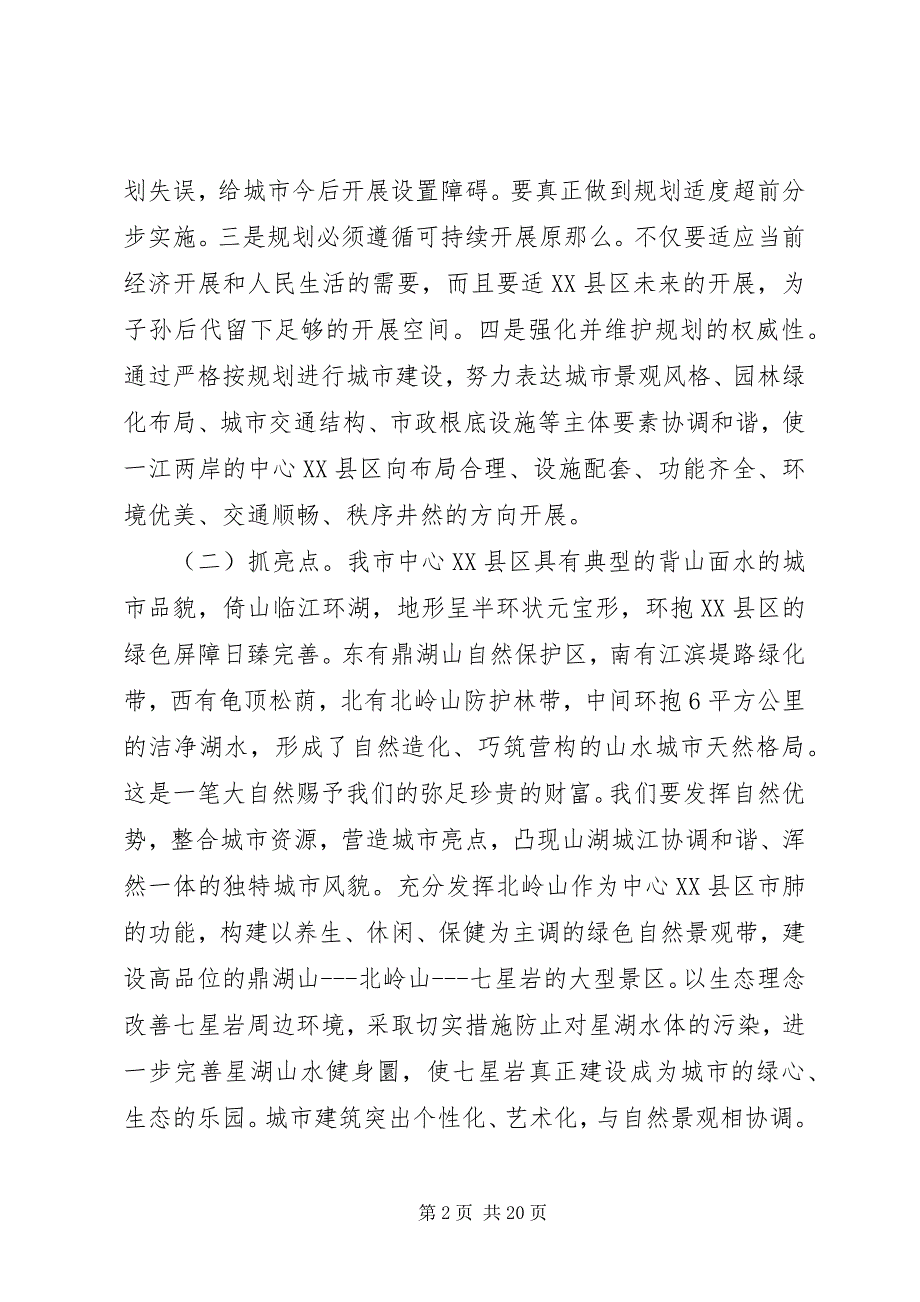 划失误，给城市今后开展设置障碍。要真正做到规划适度超前分
步实施。三是规划必须遵循可持续开展原那么。不仅要适应当前
经济开展和人民生活的需要，而且要适 XX 县区未来的开展，为
子孙后代留下足够的开展空间。四是强化并维护规划的权威性。
通过严格按规划进行城市建设，努力表达城市景观风格、园林绿
化布局、城市交通结构、市政根底设施等主体要素协调和谐，使
一江两岸的中心 XX 县区向布局合理、设施配套、功能齐全、环
境优美、交通顺畅、秩序井然的方向开展。
（二）抓亮点。我市中心 XX 县区具有典型的背山面水的城
市品貌，倚山临江环湖，地形呈半环状元宝形，环抱 XX 县区的
绿色屏障日臻完善。东有鼎湖山自然保护区，南有江滨堤路绿化
带，西有龟顶松荫，北有北岭山防护林带，中间环抱 6 平方公里
的洁净湖水，形成了自然造化、巧筑营构的山水城市天然格局。
这是一笔大自然赐予我们的弥足珍贵的财富。我们要发挥自然优
势，整合城市资源，营造城市亮点，凸现山湖城江协调和谐、浑
然一体的独特城市风貌。充分发挥北岭山作为中心 XX 县区市肺
的功能，构建以养生、休闲、保健为主调的绿色自然景观带，建
设高品位的鼎湖山---北岭山---七星岩的大型景区。以生态理念
改善七星岩周边环境，采取切实措施防止对星湖水体的污染，进
一步完善星湖山水健身圜，使七星岩真正建设成为城市的绿心、
生态的乐园。城市建筑突出个性化、艺术化，与自然景观相协调。
第 2 页 共 20 页